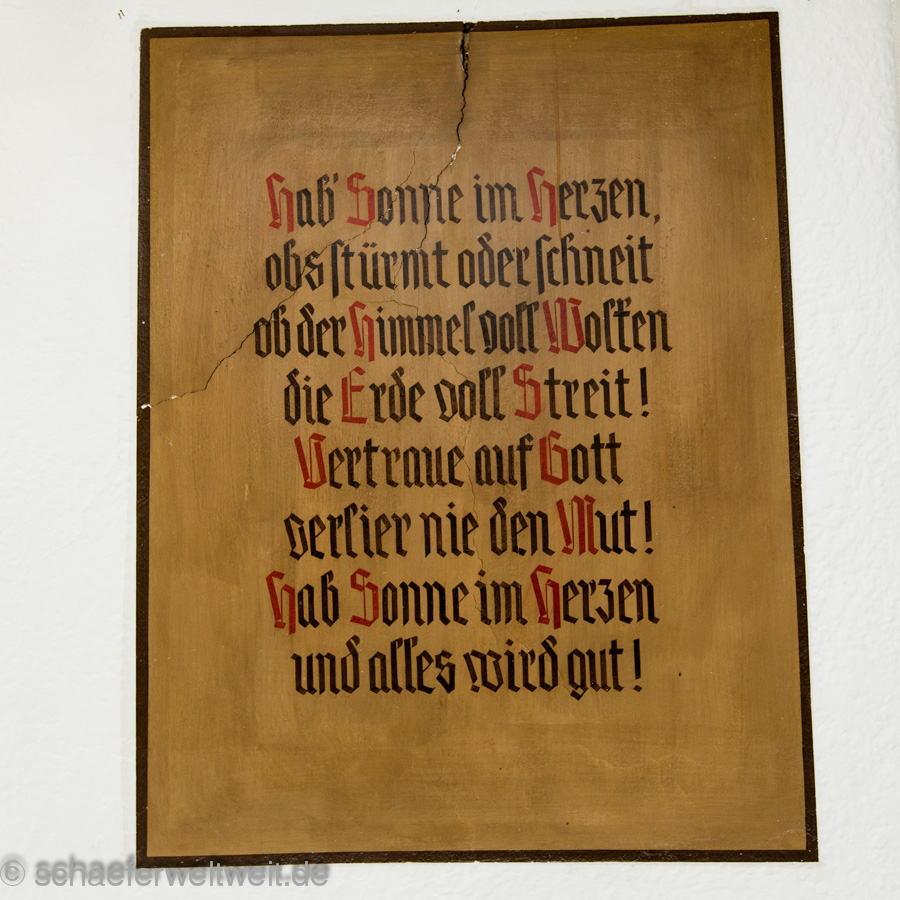 Hab' Sonne im Herzen,
obs stürmt oder schneit
ob der Himmel voll Wolken
die Erde voll Streit!
Vertraue auf Gott
verlier nie den Mut!
Hab Sonne im Herzen
und alles wird gut!
© schaeferweltweit.de